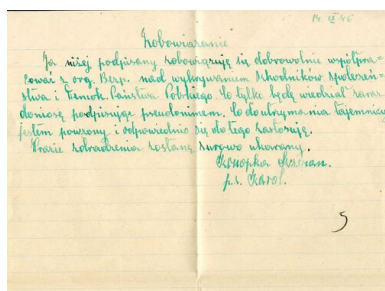 14 IX 46
Zobowiązanie
Ja niżej podpisany zobowiązuję się dobrowolnie współpra-
cować z org. Bezp. nad wykrywaniem szkodników społeczeń-
stwa i Demok. Państwa Polskiego. Co tylko będę wiedział zaraz
doniosę podpisując pseudonimem. Co do utrzymania tajemnicy
jestem pouczony i odpowiednio się do tego zastosuję.
W razie zdradzenia zostanę surowo ukarany.
Konopka
p.s. Karol.
5